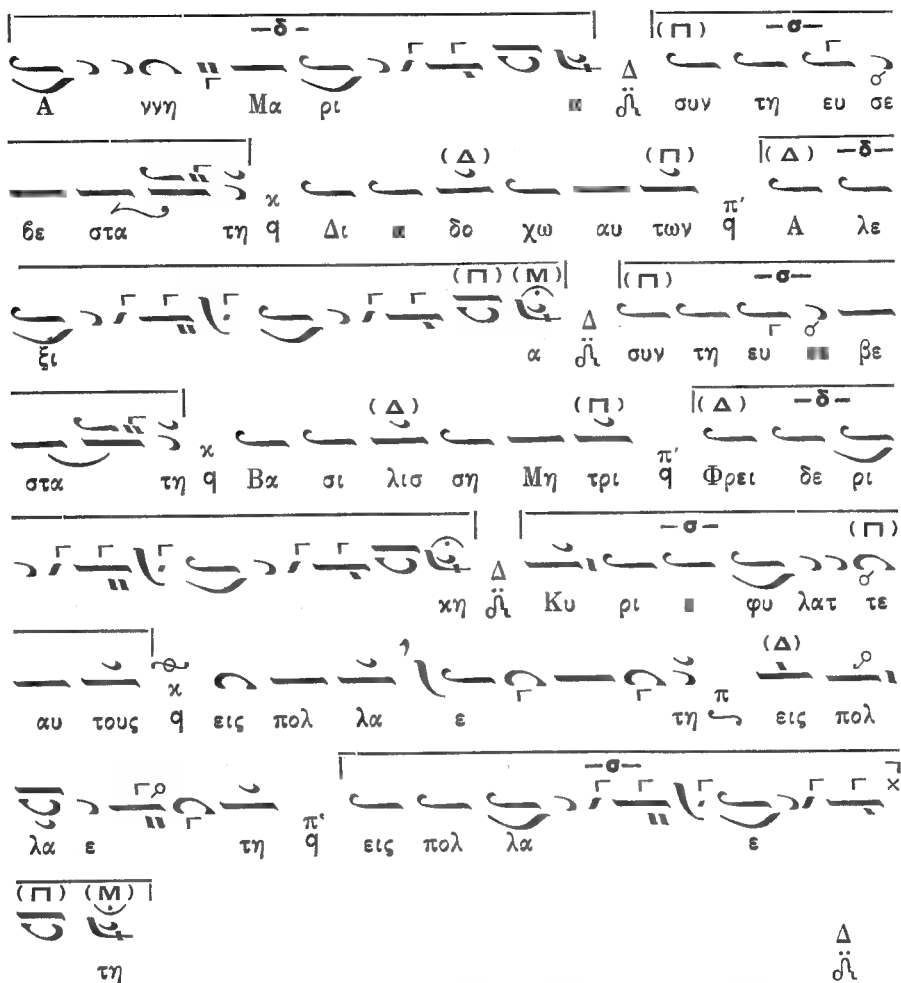 δ (Π) σ
Α ννη Μα ρι α Δ συν τη ευ σε
(Δ) (Π) (Δ) δ
βε στα τη κ q Δι α δο χω αυ των π' q Α λε
(Π) (Μ) (Π) σ
ξι α Δ συν τη ευ βε
(Δ) (Π) (Δ) δ
στα τη κ q Βα σι λισ ση Μη τρι π' q Φρει δε ρι
σ (Π)
κη Δ Κυ ρι φυ λατ τε
(Δ)
αυ τους κ q εις πολ λα ε τη π εις πολ
σ
λα ε τη π' q εις πολ λα ε
(Π) (Μ)
τη Δ